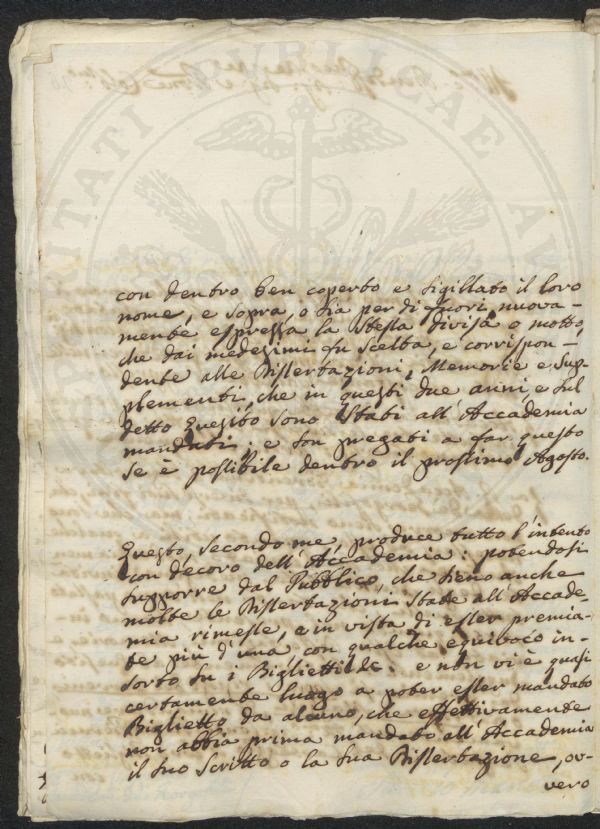 con dentro ben coperto e sigillato il loro
nome, e sopra, o sia per di fuori nuova-
mente espressa la stessa divisa o motto,
che dai medesimi fu scelta, e corrispon-
dente alle Dissertazioni, Memorie e Sup-
plementi, che in questi due anni, e sul
detto Quesito sono stati all'Accademia
mandati; e son pregati a far questo
se è possibile dentro il prossimo Agosto.
Questo, secondo me, produce tutto l'intento
con decoro dell'Accademia: potendosi
supporre dal Pubblico, che sieno anche
molte le Dissertazioni state all'Accade-
mia rimesse, e in vista di esser premia-
te più d'una, con qualche equivoco in-
sorto su i Biglietti &c. e non vi è quasi
certamente luogo a poter esser mandato
Biglietto da alcuno, che effettivamente
non abbia prima mandato all'Accademia
il suo Scritto o la sua Dissertazione, ov-
vero